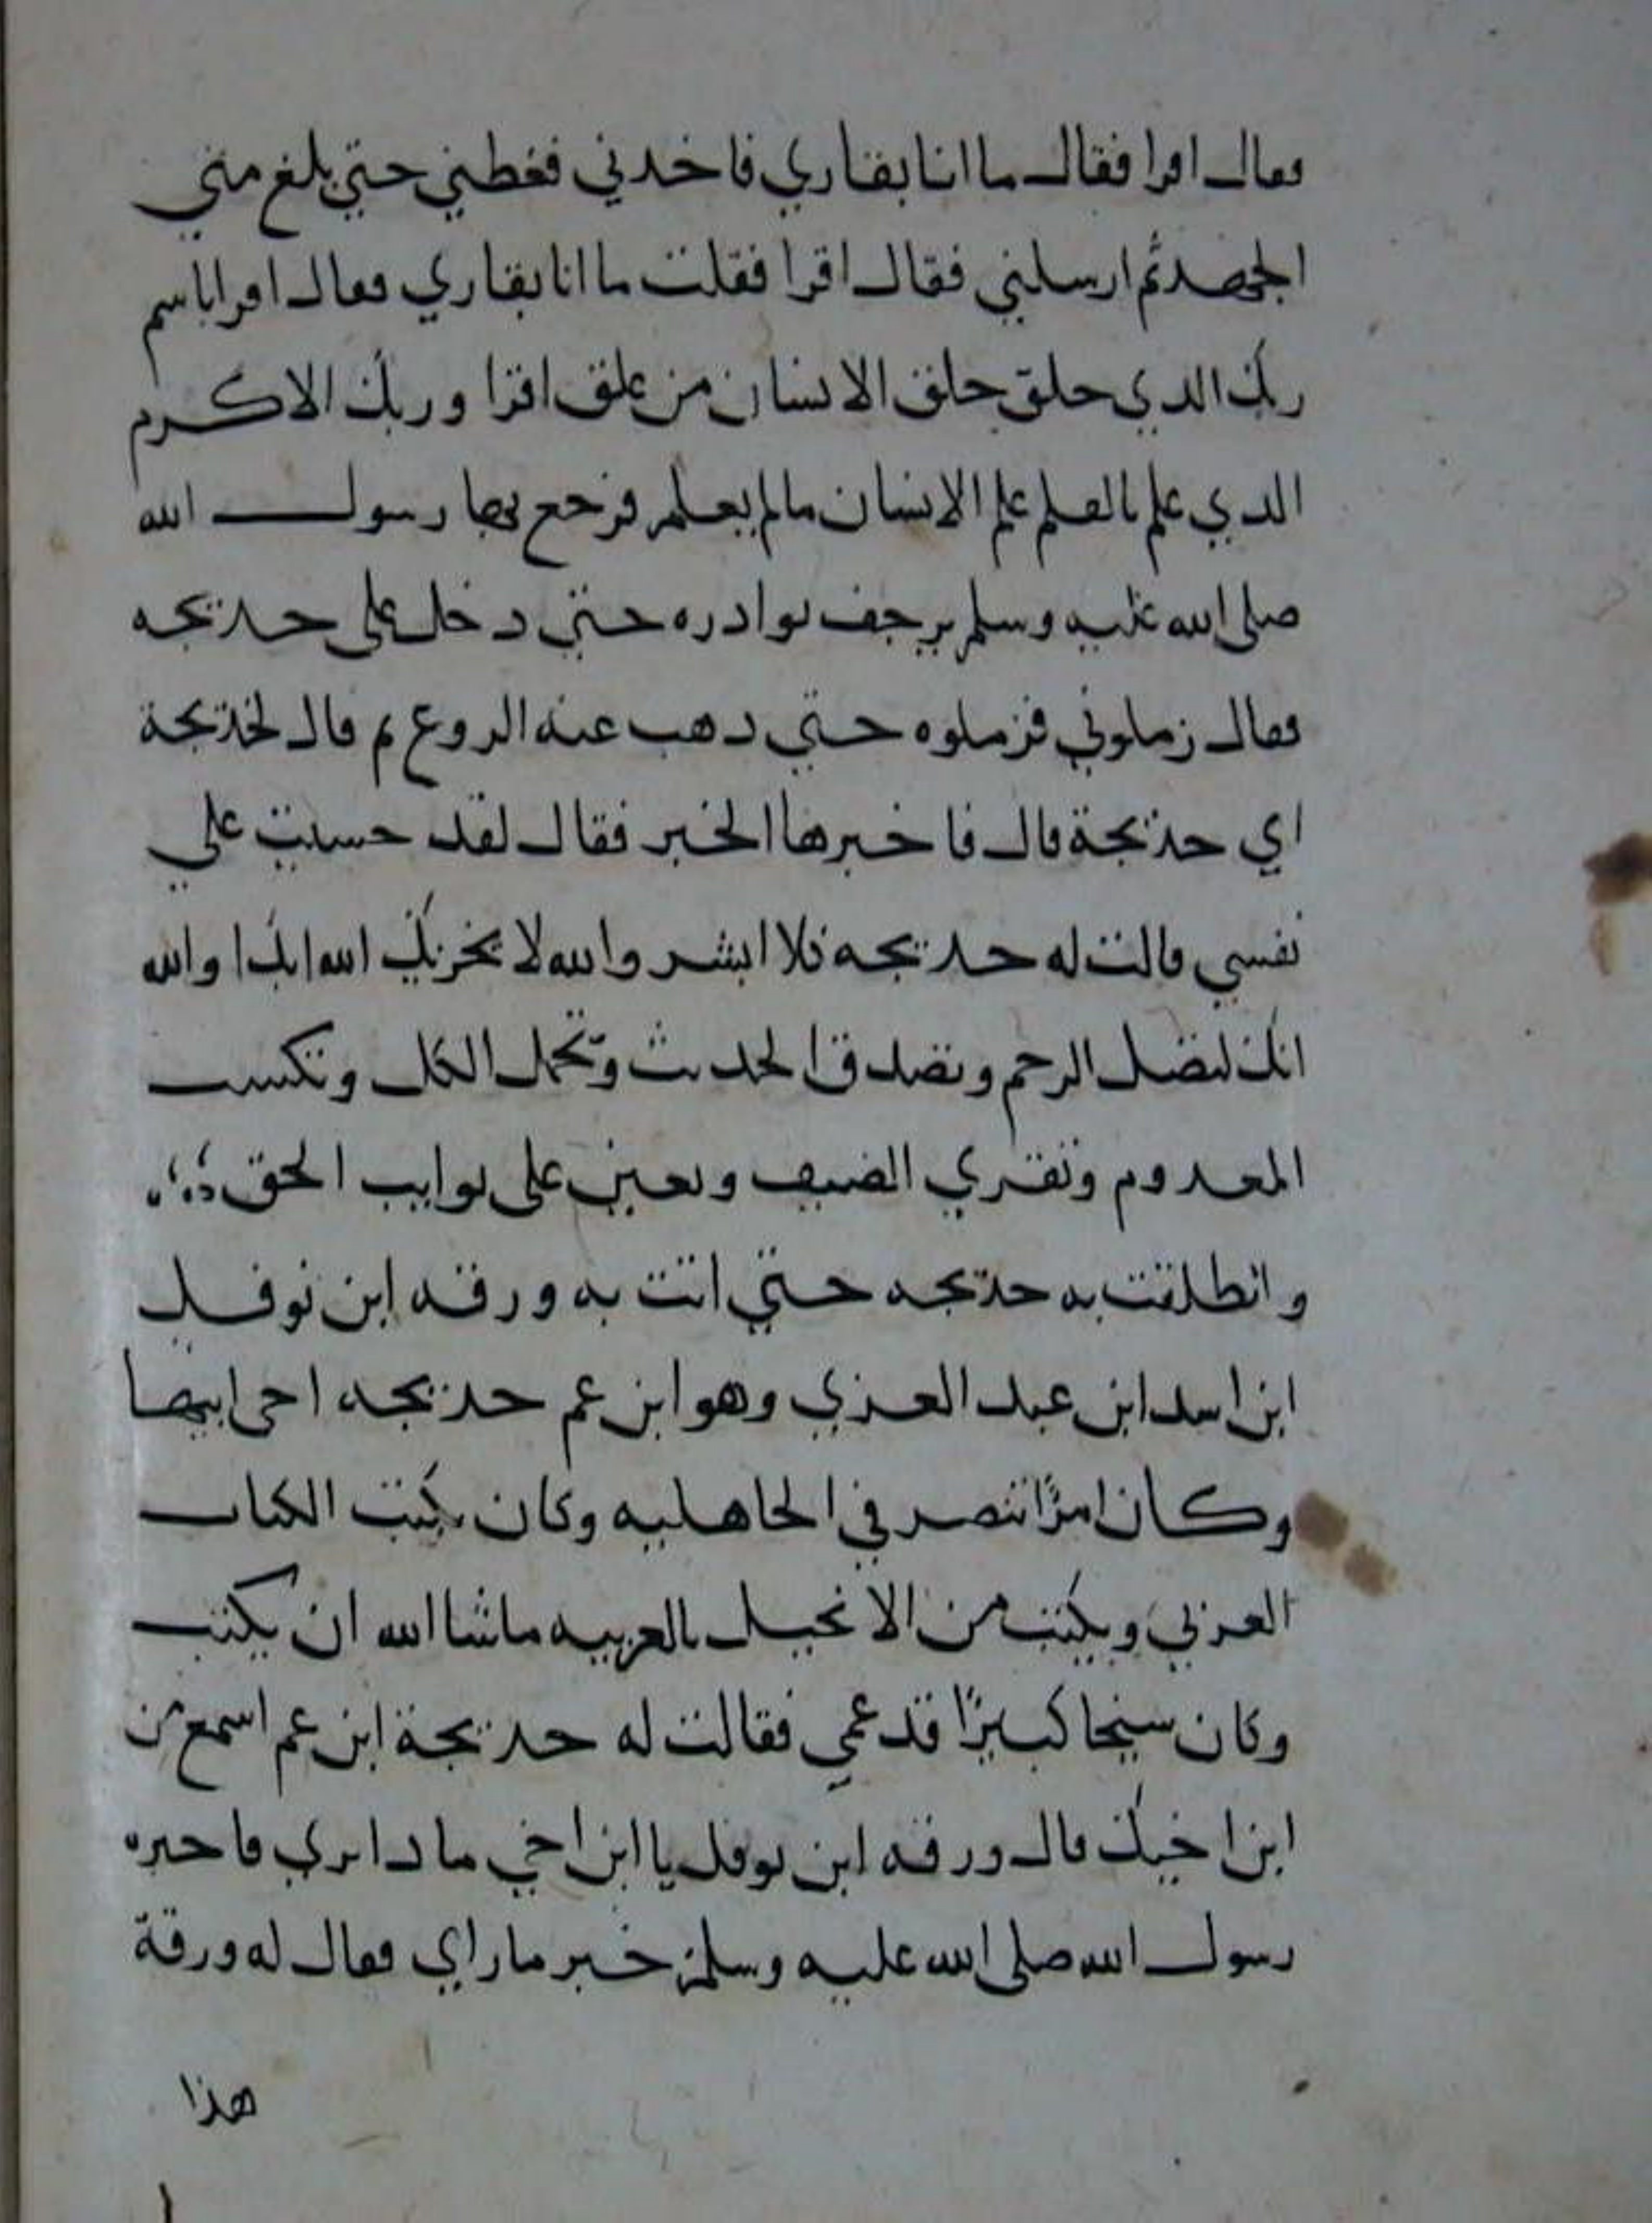 فقال اقرا فقال ما انا بقاري فاخدني فغطني حتي بلغ مني
الجهد ثم ارسلني فقال اقرا فقلت ما انا بقاري فقال اقرا باسم
ربك الدي خلق خلق الانسان من علق اقرا وربك الاكرم
الدي علم بالقلم علم الانسان مالم يعلم فرجع بها رسول الله
صلى الله عليه وسلم يرجف بوادره حتي دخل على خديجه
فقال زملوني فزملوه حتي دهب عنه الروع ثم قال لخديجة
اي خديجة قال فاخبرها الخبر فقال لقد خسيت علي
نفسي قالت له خديجه كلا ابشر والله لا يخزيك الله ابدا والله
انك لتصل الرحم وتصدق الحديث وتحمل الكل وتكسب
المعدوم وتقري الضيف وتعين على نوايب الحق
وانطلقت به خديجه حتي اتت به ورقه ابن نوفل
ابن اسد ابن عبد العزي وهو ابن عم خديجه اخى ابيها
وكان امرًا تنصر في الجاهليه وكان يكتب الكتاب
العربي ويكتب من الانجيل بالعربيه ماشا الله ان يكتب
وكان سيخا كبيرًا قد عمي فقالت له خديجة ابن عم اسمع من
ابن اخيك قال ورقه ابن نوفل يا ابن اخي مادا تري فاخبره
رسول الله صلى الله عليه وسلم خبر ما راي فقال له ورقة
هذا